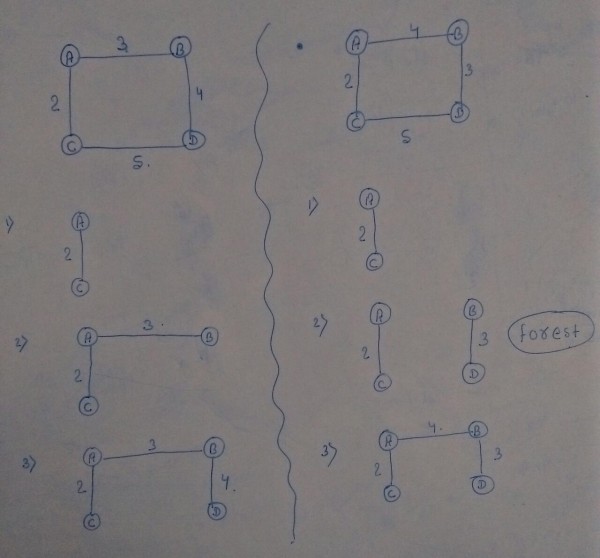 A 3 B
2 4
C 5. D
1)
A
2
C
2)
A 3. B
2
C
3)
A 3 B
2 4.
C D
A 4 B
2 3
C 5 B
1)
A
2
C
2)
A B
2 3
C D
forest
3)
A 4. B
2 3
C D